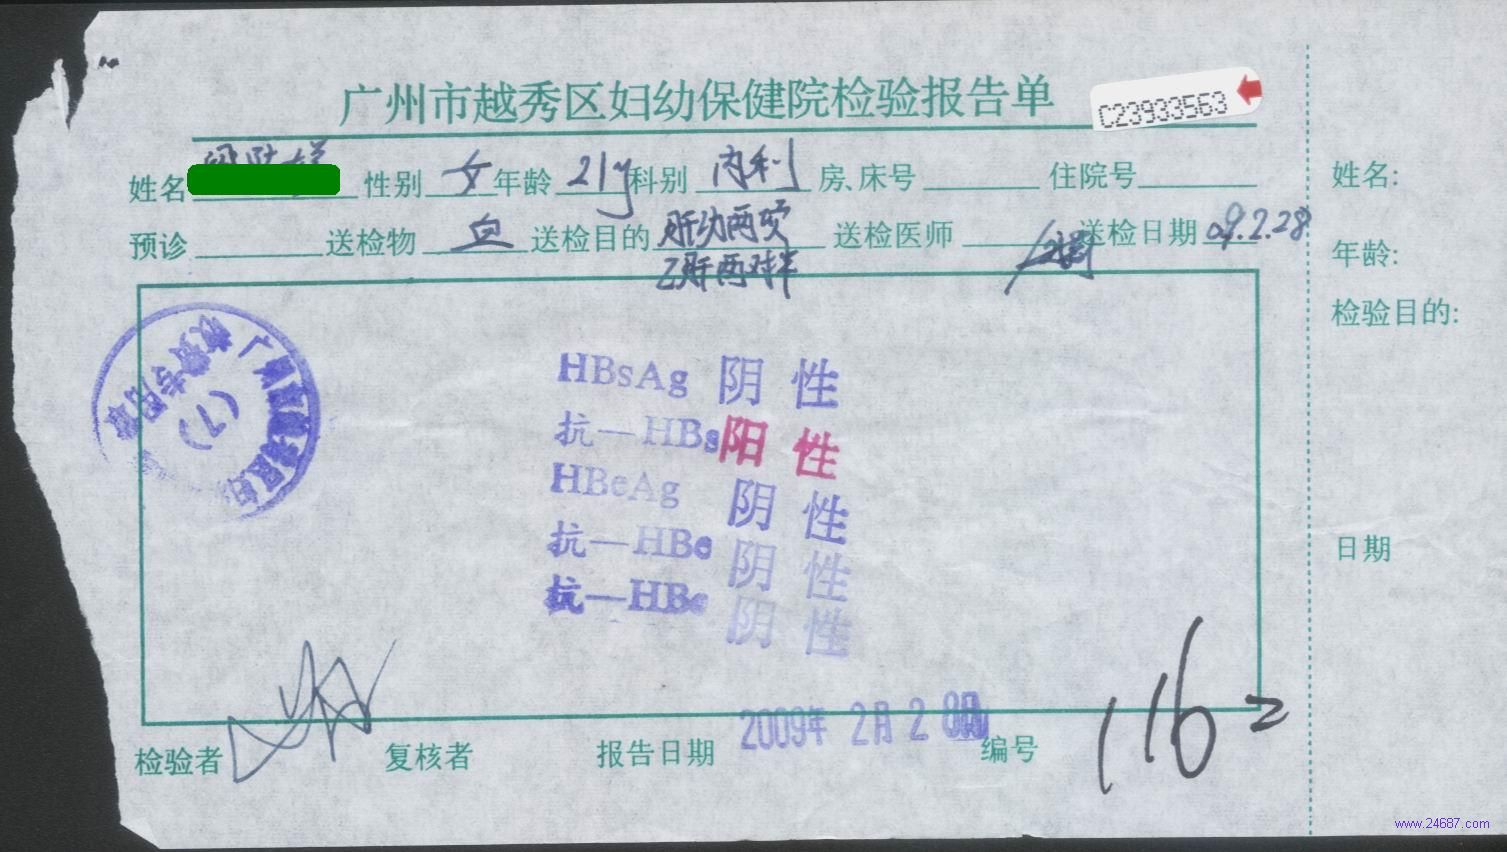 广州市越秀区妇幼保健院检验报告单
C23933563
姓名 性别 女 年龄 21y 科别 内科 房、床号 住院号
预诊 送检物 血 送检目的 肝功两项 送检医师 送检日期 09.2.28
乙肝两对半
HBsAg 阴性
抗—HBs 阳性
HBeAg 阴性
抗—HBe 阴性
抗—HBc 阴性
检验者 复核者 报告日期 2009年2月28日 编号 1162
姓名:
年龄:
检验目的:
日期
收费专用章
(7)
www.24687.com